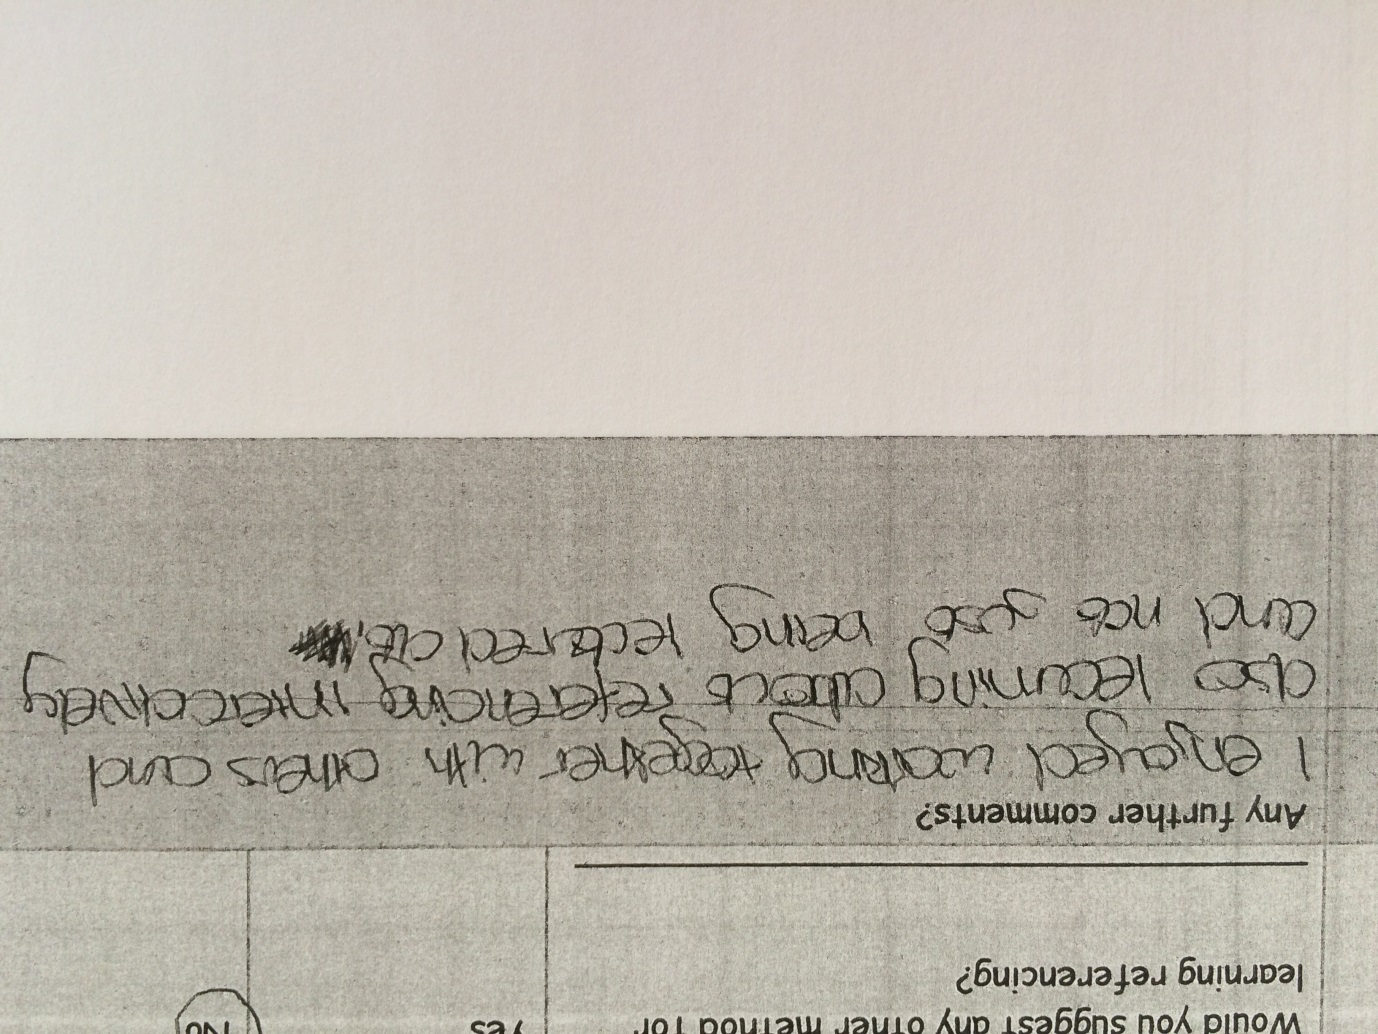 Would you suggest any other method for
learning referencing?
Yes
No
Any further comments?
I enjoyed working together with others and
also learning about referencing interactively
and not just being lectured at.